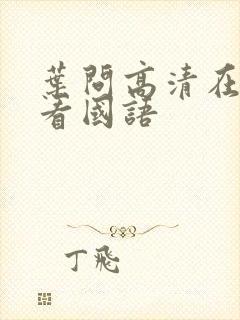 葉問高清在
看國語
丁飛